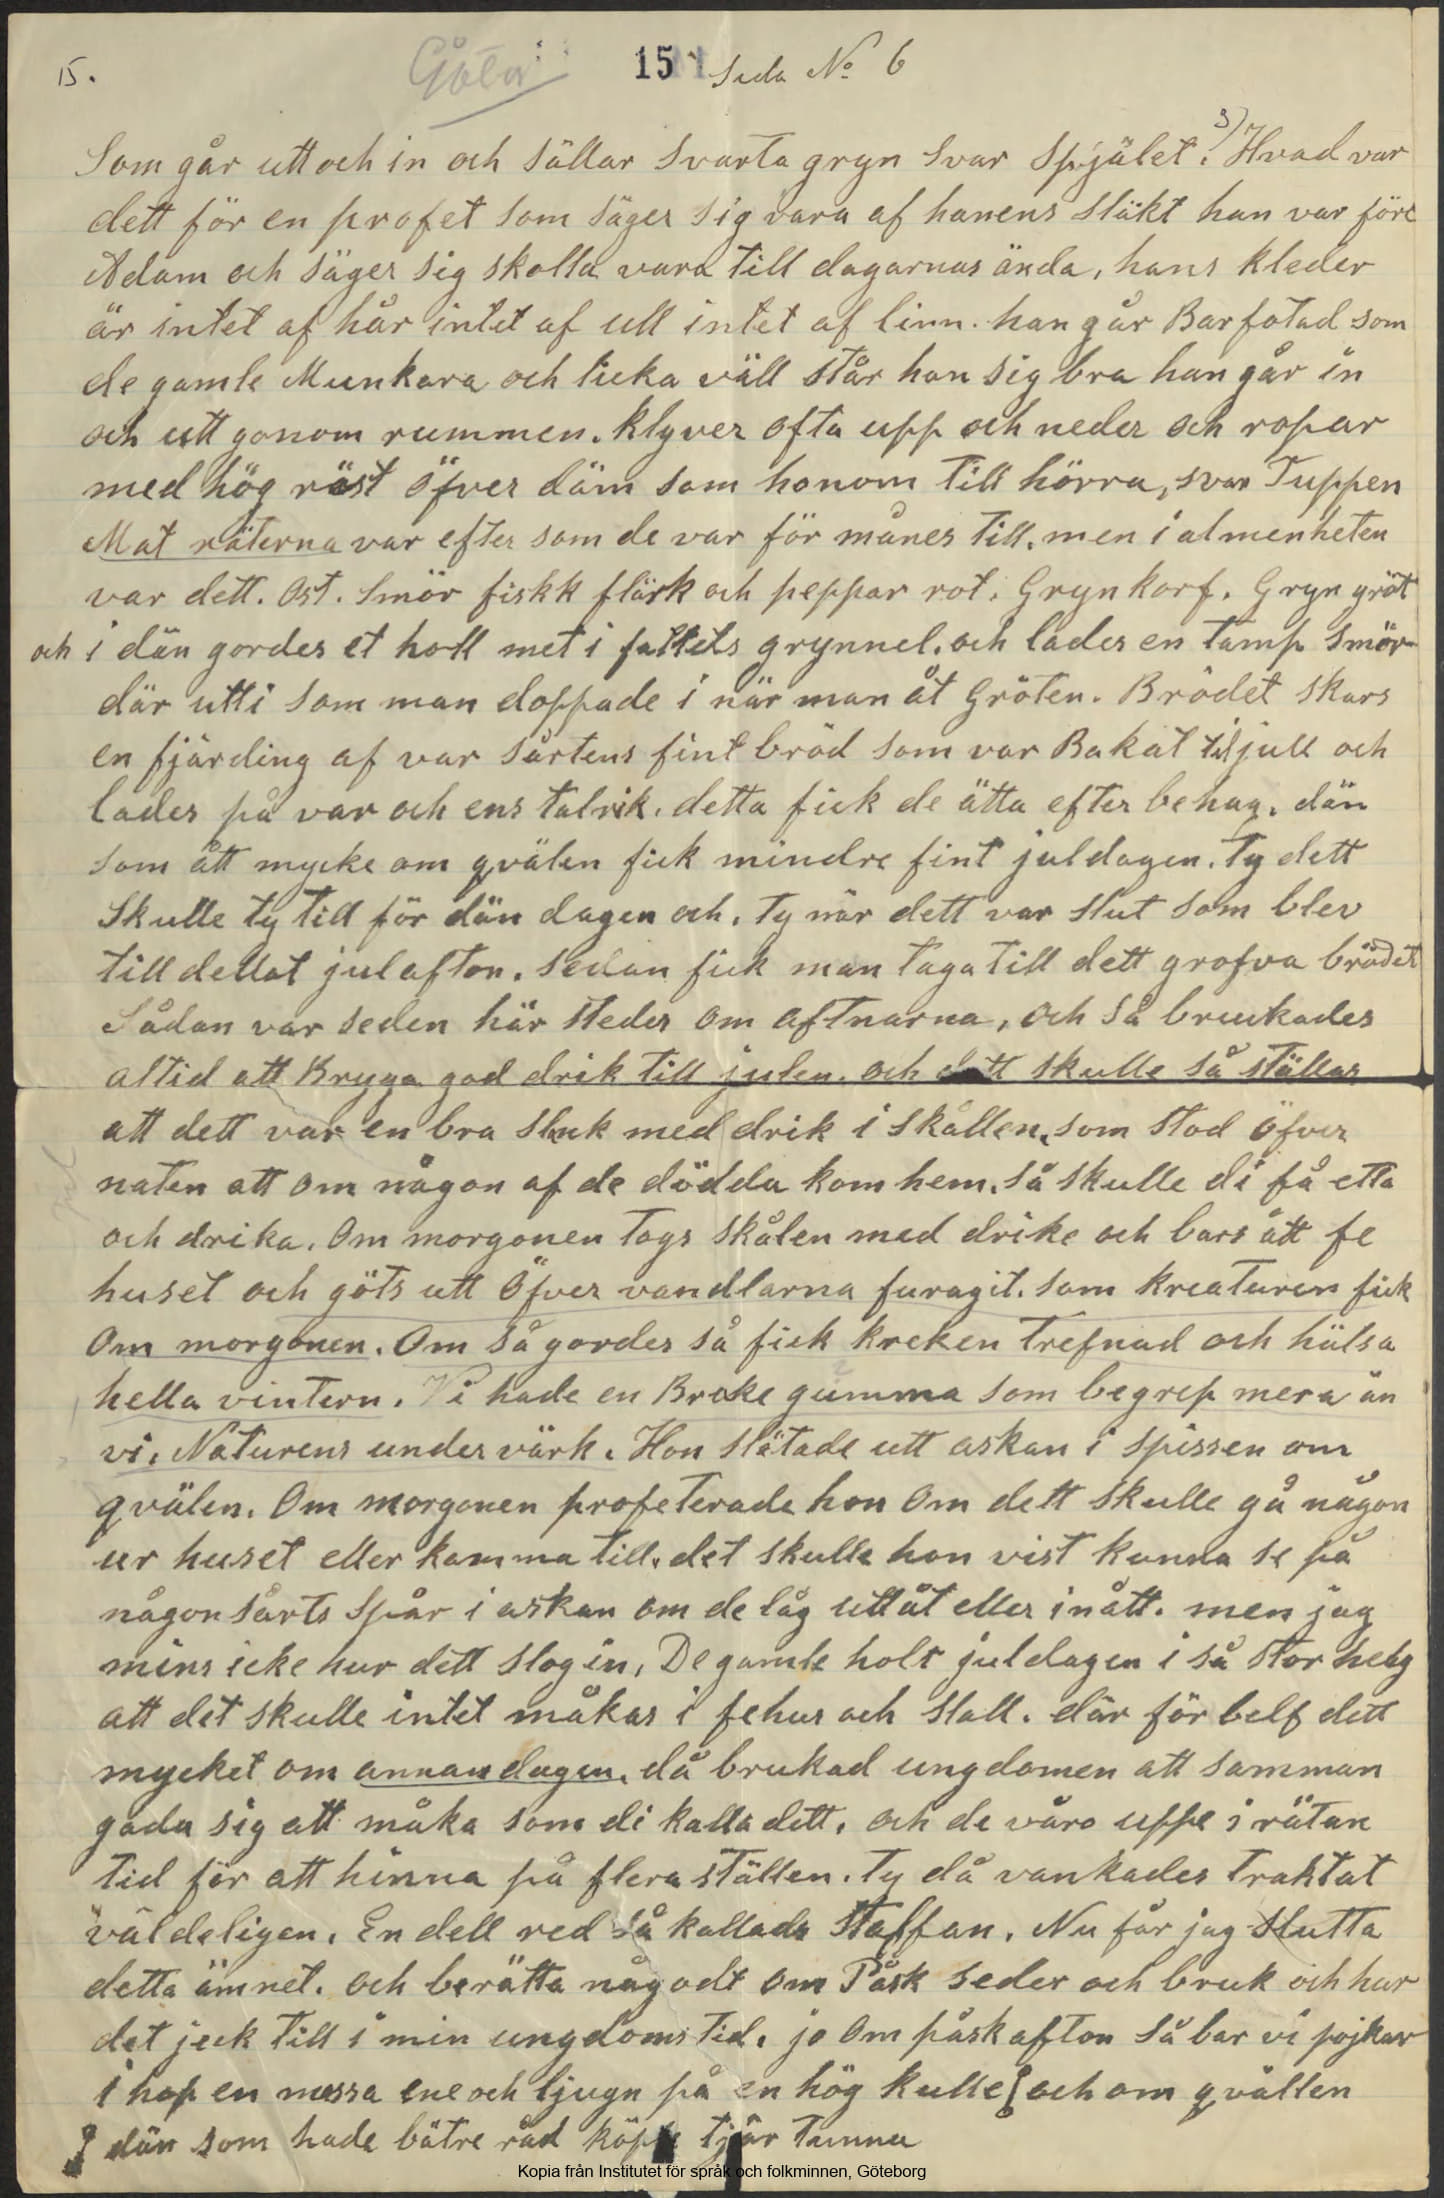 15. Gåtor 15 Sida No 6
Som går utt och in och sällar svarta gryn svar Spjälet. 3) Hvad var
dett för en profet som säger sig vara af hanens släkt han var före
Adam och säger sig skolla vara till dagarnas ända, hans kleder
är intet af hår intet af ull intet af linn. han går Barfotad som
de gamle Munkara och licka väll står han sig bra han går in
och utt gonom rummen. klyver ofta upp och neder och ropar
med hög röst öfver däm som honom till hörra, svar Tuppen
Mat räterna var efter som de var för månes till. men i almenheten
var dett. Ost. Smör fiskk flärk och peppar rot. Gryn korf. Gryn gröt
och i dän gordes et holl met i fattets grynnel. och lades en tamp smör
där utti som man doppade i när man åt Gröten. Brödet skars
en fjärding af var sårtens fint bröd som var Bakat til jull och
lades på var och ens talrik. detta fick de ätta efter behag. dän
som ått mycke om qvälen fick mindre fint juldagen. Ty dett
Skulle ty till för dän dagen och. Ty när dett var slut som blev
till dellat julafton. sedan fick man taga till dett grofva brödet
Sådan var seden här steder om aftnarna, och så bruckades
altid att Brygga god drik till julen. och dett skulle så ställas
att dett var en bra sluk med drik i skållen, som stod öfver
naten att om någon af de dödda kom hem. så skulle di få etta
och drika. Om morgonen togs skålen med drike och bars ått fe
huset och göts utt Öfver vandlarna furagit. som kreaturen fick
Om morgonen. Om så gordes så fick kreken trefnad och hälsa
hella vintern. Vi hade en Brake gumma som begrep mera än
vi. Naturens under värk. Hon slätade utt askan i spissen om
qvälen. Om morgonen profeterade hon Om dett skulle gå någon
ur huset eller komma till. det skulle hon vist kunna se på
någon sårts spår i askan om de låg uttåt eller inått. men jag
mins icke hur dett slog in, De gamle holt juldagen i så stor helg
att det skulle intet måkas i fehus och stall. där för belf dett
mycket om annandagen. då brukad ungdomen att samman
gada sig att måka som di kalla dett. och de våro uppe i rätan
tid för att hinna på flera ställen. ty då vankades traktat
väldeligen. En dell red så kallada Staffan. Nu får jag slutta
detta ämnet. och berätta någodt om Påsk seder och bruk och hur
det jeck till i min ungdoms tid. jo Om påskafton så bar vi pojkar
i hop en massa ene och ljugn på en hög kulle och om qvällen
dän som hade bätre råd köpte tjär tunna
Kopia från Institutet för språk och folkminnen, Göteborg